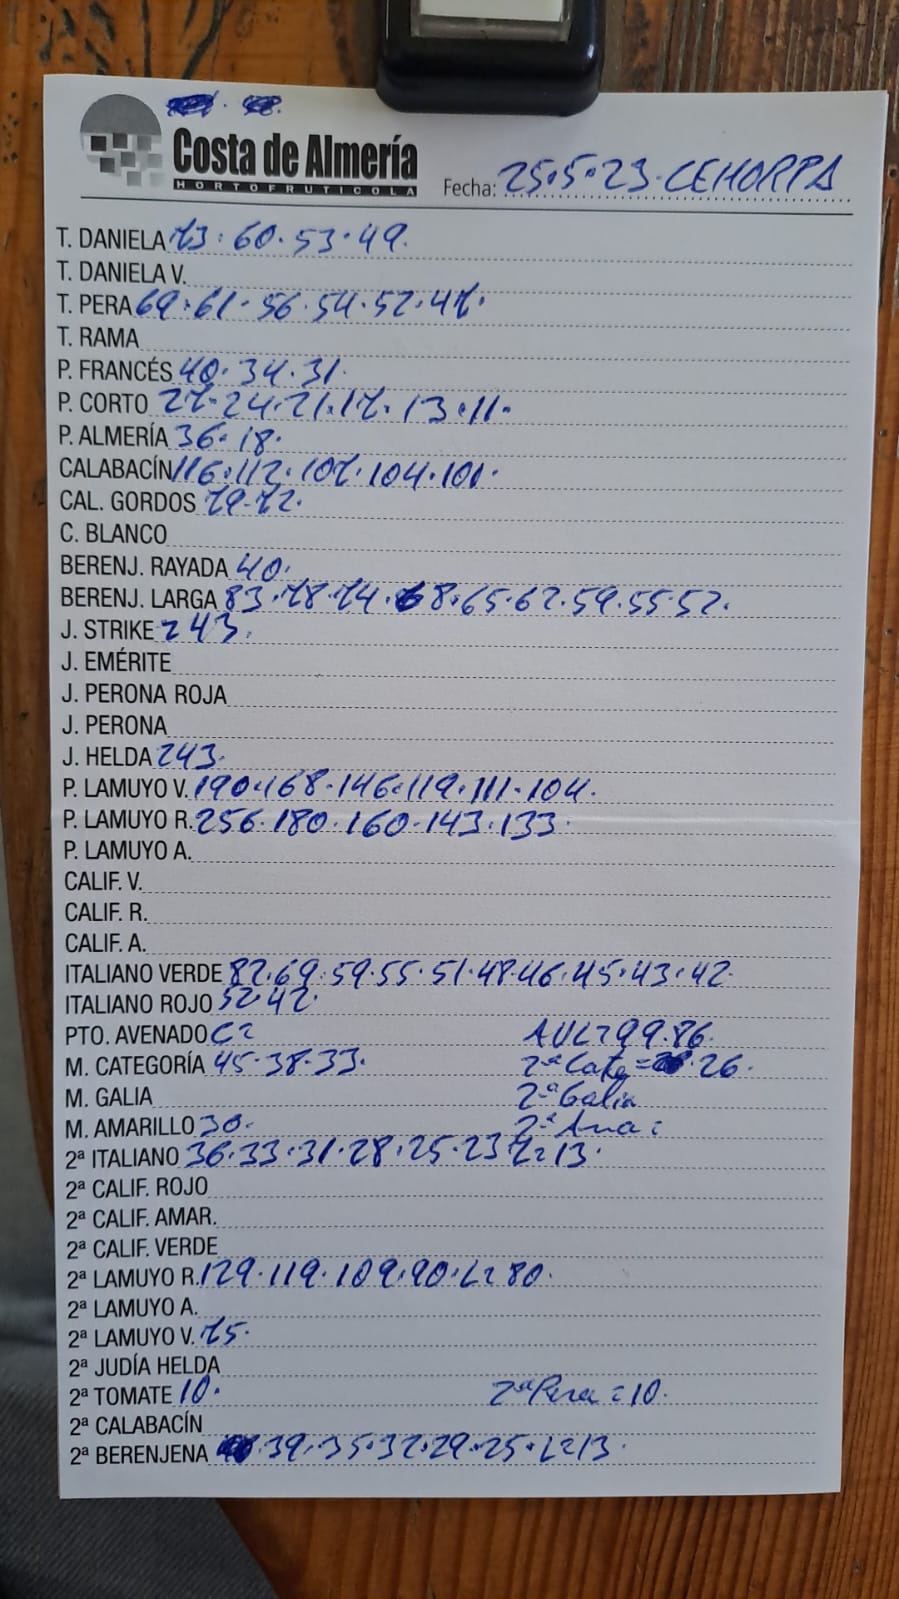 Costa de Almería
HORTOFRUTICOLA
Fecha: 25.5.23. CEHORPA
T. DANIELA 73. 60. 53. 49.
T. DANIELA V.
T. PERA 69. 61. 56. 54. 52. 47.
T. RAMA
P. FRANCÉS 40. 34. 31.
P. CORTO 27. 24. 21. 17. 13. 11.
P. ALMERÍA 36. 18.
CALABACÍN 116. 112. 107. 104. 101.
CAL. GORDOS 79. 72.
C. BLANCO
BERENJ. RAYADA 40.
BERENJ. LARGA 83. 78. 74. 68. 65. 62. 59. 55. 52.
J. STRIKE 243.
J. EMÉRITE
J. PERONA ROJA
J. PERONA
J. HELDA 243.
P. LAMUYO V. 190. 168. 146. 119. 111. 104.
P. LAMUYO R. 256. 180. 160. 143. 133.
P. LAMUYO A.
CALIF. V.
CALIF. R.
CALIF. A.
ITALIANO VERDE 82. 69. 59. 55. 51. 48. 46. 45. 43. 42.
ITALIANO ROJO 52. 42.
PTO. AVENADO C= AVL=99.86.
M. CATEGORÍA 45. 38. 33. 2ª Cate= 26.
M. GALIA 2ª Galia
M. AMARILLO 30. 2ª Ama=
2ª ITALIANO 36. 33. 31. 28. 25. 23 L=13.
2ª CALIF. ROJO
2ª CALIF. AMAR.
2ª CALIF. VERDE
2ª LAMUYO R. 129. 119. 109. 90. L=80.
2ª LAMUYO A.
2ª LAMUYO V. 75.
2ª JUDÍA HELDA
2ª TOMATE 10. 2ª Pera=10.
2ª CALABACÍN
2ª BERENJENA 39. 35. 32. 29. 25. L=13.